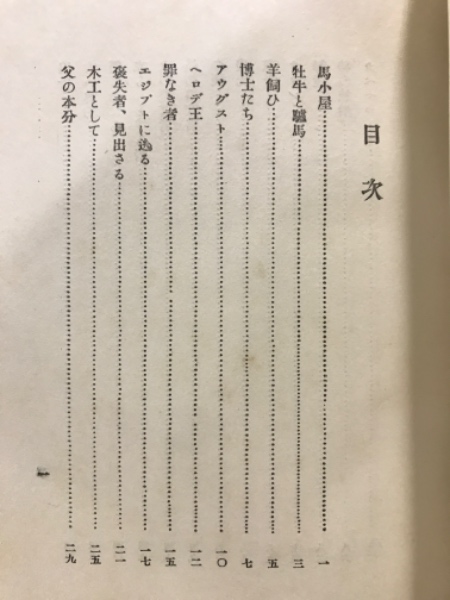 目次
馬小屋……一
牡牛と驢馬……三
羊飼ひ……五
博士たち……七
アウグスト……一〇
ヘロデ王……一二
罪なき者……一五
エジプトに逃る……一七
喪失者、見出さる……二一
木工として……二五
父の本分……二九
一